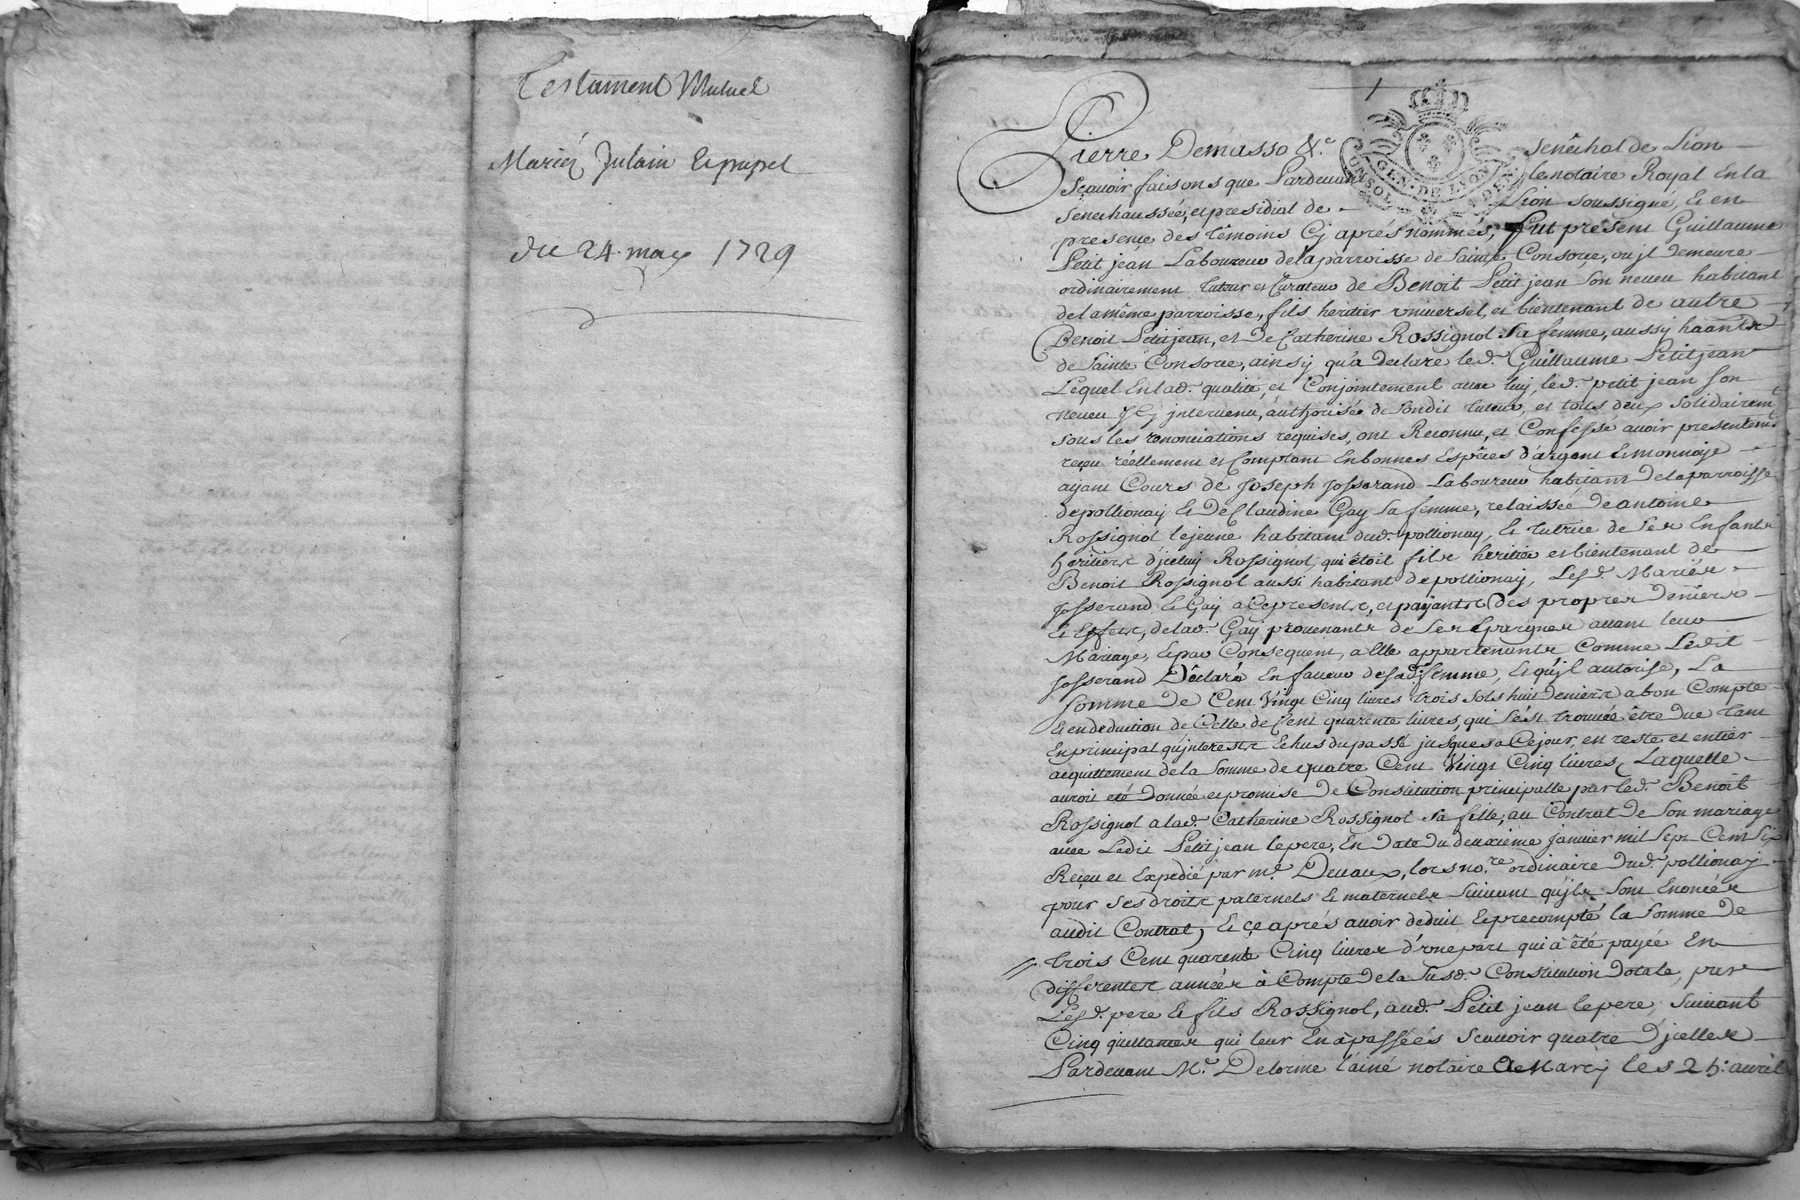 Testament Mutuel
Mariéz Julain &
du 24 may 1729
1
GEN. DE LYON
Pierre Demasso &c. senêchal de Lion
Sçauoir faisons que Pardeuant le notaire Royal En la
senechaussée, et presidial de Lion soussigné, & en
presence des têmoins Cy aprés nommés, fut present Guillaume
Petit jean Laboureur de la parroisse de Sainte Consorce, ou jl demeure
ordinairement tuteur et Curateur de Benoit Petit jean son neueu habitant
de la même parroisse, fils heritier vniuersel, et bientenant de autre
Benoit Petitjean, et De Catherine Rossignol sa femme, aussy haant
de Sainte Consorce, ainsy qu'a declare led. Guillaume Petitjean
Lequel En lad. qualité, et Conjointement auec luy, led. petit jean son
neueu jcy jnteruenu, authorisée de sondit tuteur, et tous deux solidairemt
sous les renonciations requises, ont Reconnu, et Confessé auoir presentemt
reçeu réellement et Comptant En bonnes Espêces d'argent & monnoye
ayant Cours de Joseph Josserand Laboureur habitant de la parroisse
de pollionay & De Claudine Gay sa femme, relaissée de antoine
Rossignol le jeune habitant dud. pollionay, & tutrice de ses Enfants
héritiers d'jceluy Rossignol, qui étoit fils heritier et bientenant de
Benoit Rossignol aussi habitant de pollionay, Lesd. Mariés
Josserand & Gay a Ce presents, et payants des propres deniers
& Effets, de lad. Gay prouenants de ses Epargnes auant leur
Mariage, & par Consequent, a elle appartenants Comme Ledit
Josserand Dêclare En faueur de sad. femme, & qu'jl autorise, La
somme de Cent Vingt Cinq liures trois sols huit deniers a bon Compte
& en deduction de Celle de Cent quarente liures, qui s'est trouuée être due tant
En principal qu'jnterests Echus du passé jusques a Ce jour, en reste et entier
acquittement de la somme de quatre Cent Vingt Cinq liures, Laquelle
auroit eté Donnée et promise de Constitution principalle par led. Benoit
Rossignol a lad. Catherine Rossignol sa fille, au Contrat de son mariage
auec Ledit Petit jean le pere, En Date du deuxième Januier mil sept Cent Six
Reçeu et Expedié par me. Deuaux, lors nore. ordinaire dud. pollionay
pour ses droits paternels & maternels suiuant qu'jls sont Enoncés
audit Contrat, & çe aprés auoir deduit & precompté la somme de
trois Cent quarente Cinq liures d'vne part qui à êté payée En
differentes années à Compte de la susd. Constitution dotale, par
Lesd. pere & fils Rossignol, aud. Petit jean le pere, suiuant
Cinq quittances qui leur En à passéés sçauoir quatre D'jcelles
Pardeuant Me. Delorme l'ainé notaire A Marcy les 25. auril